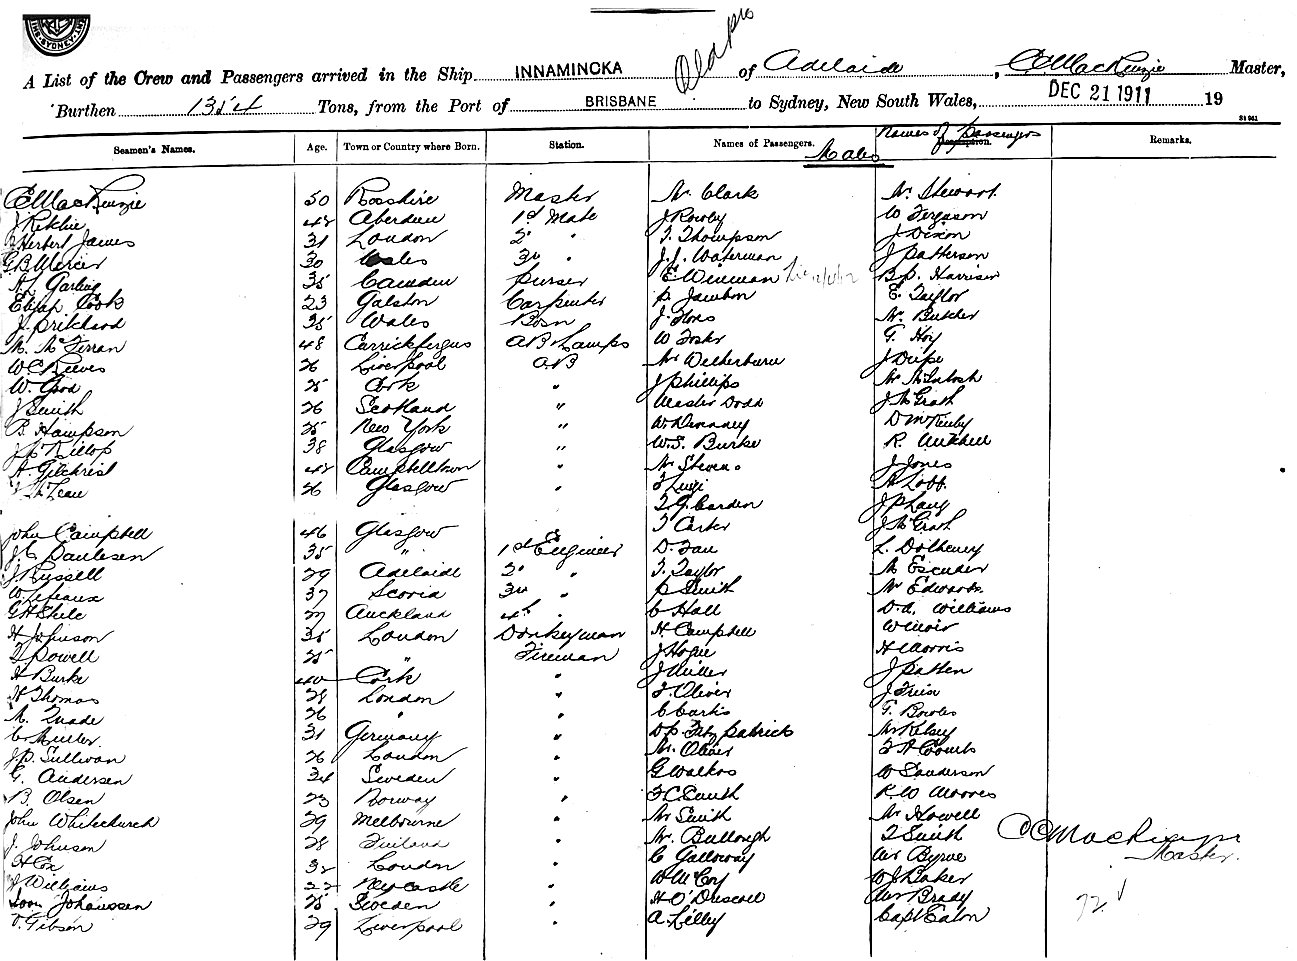 A List of the Crew and Passengers arrived in the Ship INNAMINCKA of Adelaide, C. MacKenzie Master,
Burthen 1354 Tons, from the Port of BRISBANE to Sydney, New South Wales, DEC 21 1911 19
Seamen's Names. Age. Town or Country where Born. Station. Names of Passengers. Males Names of Passengers Description. Remarks.
MacKenzie 50 Rosshire Master Mr Clark Mr Stewart
J Ritchie 42 Aberdeen 1st Mate J Rowley W Ferguson
Herbert James 31 London 2d " T. Thompson J Dixon
G B Mercer 30 Wales 3rd " J. J. Waterman J Patterson
Garling 35 Camden Purser E Wineman B P. Harrison
Elijah Cook 23 Galston Carpenter P. Jawbon E. Taylor
J. Pritchard 35 Wales Bosn J. Mr. Butcher
M. McFerran 48 Carrickfergus AB Lamps W Foster G. Hoy
W C Reeves 26 Liverpool AB Mr Wetherburn J
W. Good 25 Cork " J Phillips Mr McIntosh
J Smith 26 Scotland " Master Dodd J McGrath
B. Hampson 25 New York " W Dennney D
J. McKillop 38 Glasgow " W. S. Burke R.
A Gilchrist 42 Campbelltown " Mr Stevens J Jones
J McLean 26 Glasgow " F Luigi Lobb.
T. G. Carden J P Lang
John Campbell 46 Glasgow T Carter J McGrath
J. C. Paulesen 35 " 1st Engineer D. L. Dolheney
J. Russell 29 Adelaide 2d " T. Taylor M Escuder
W. 37 Scoria 3rd " P Smith Mr Edwards
G H 27 Auckland 4th " C Hall D. A. Williams
H Johnson 35 London Donkeyman H. Campbell W Muir
Powell 25 " Fireman J Hogue H Morris
H Burke 40 Cork " J Miller J Patten
H Thomas 28 London " T. Oliver J
M. Quade 26 " " C Curtis F. Bowles
C Muller 31 Germany " D P. Fitzpatrick Mr Kelsey
J P. Sullivan 26 London " Mr. Oliver T A Coombs
G. Andersen 34 Sweden " G W Sanderson
B. Olsen 23 Norway " F C Smith R W Moores
John Whitchurch 29 Melbourne " Mr Smith Mr Howell
J. Johnson 28 Finland " Mr. Bullough T Smith C C MacKenzie
H Cox 32 London " C Galloway Mr Byrne Master.
Williams 22 Newcastle " W McCoy W J Baker
Johanssen 25 Sweden " H O'Driscoll Mr Brady 72
Gibson 29 Liverpool " A. Lilley Capt Eaton